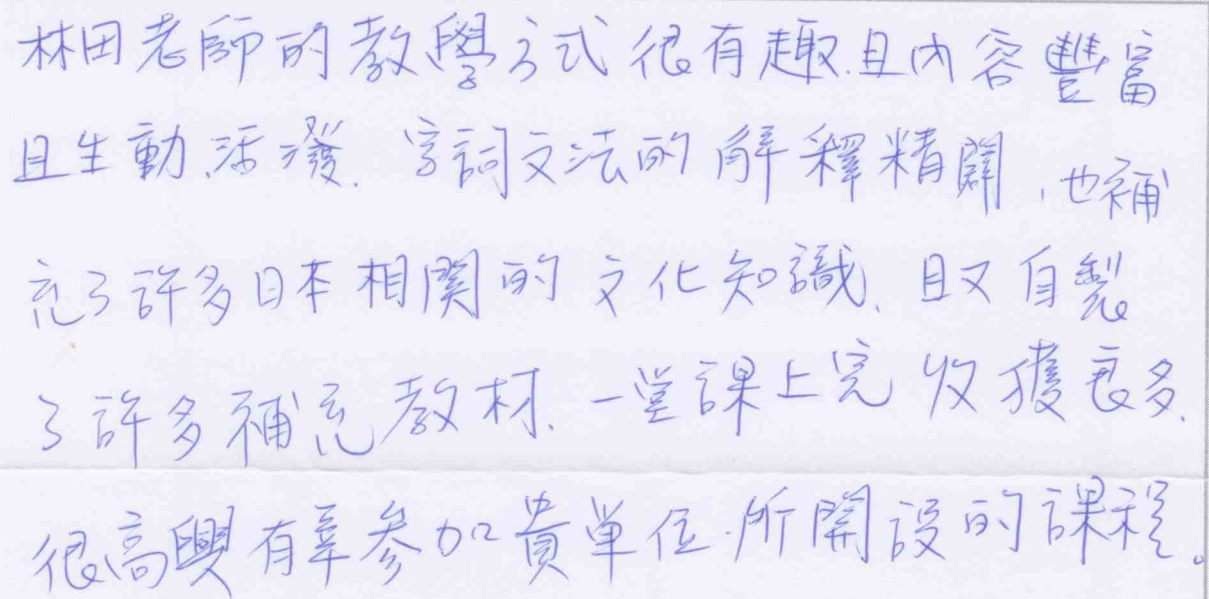 林田老師的教學方式很有趣.且內容豐富
且生動.活潑.字詞文法的解釋精闢,也補
充了許多日本相關的文化知識.且又自製
了許多補充教材.一堂課上完收獲良多.
很高興有幸參加貴單位.所開設的課程。